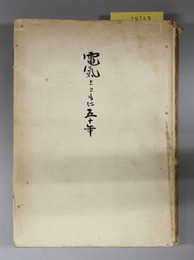 電氣とともに五十年